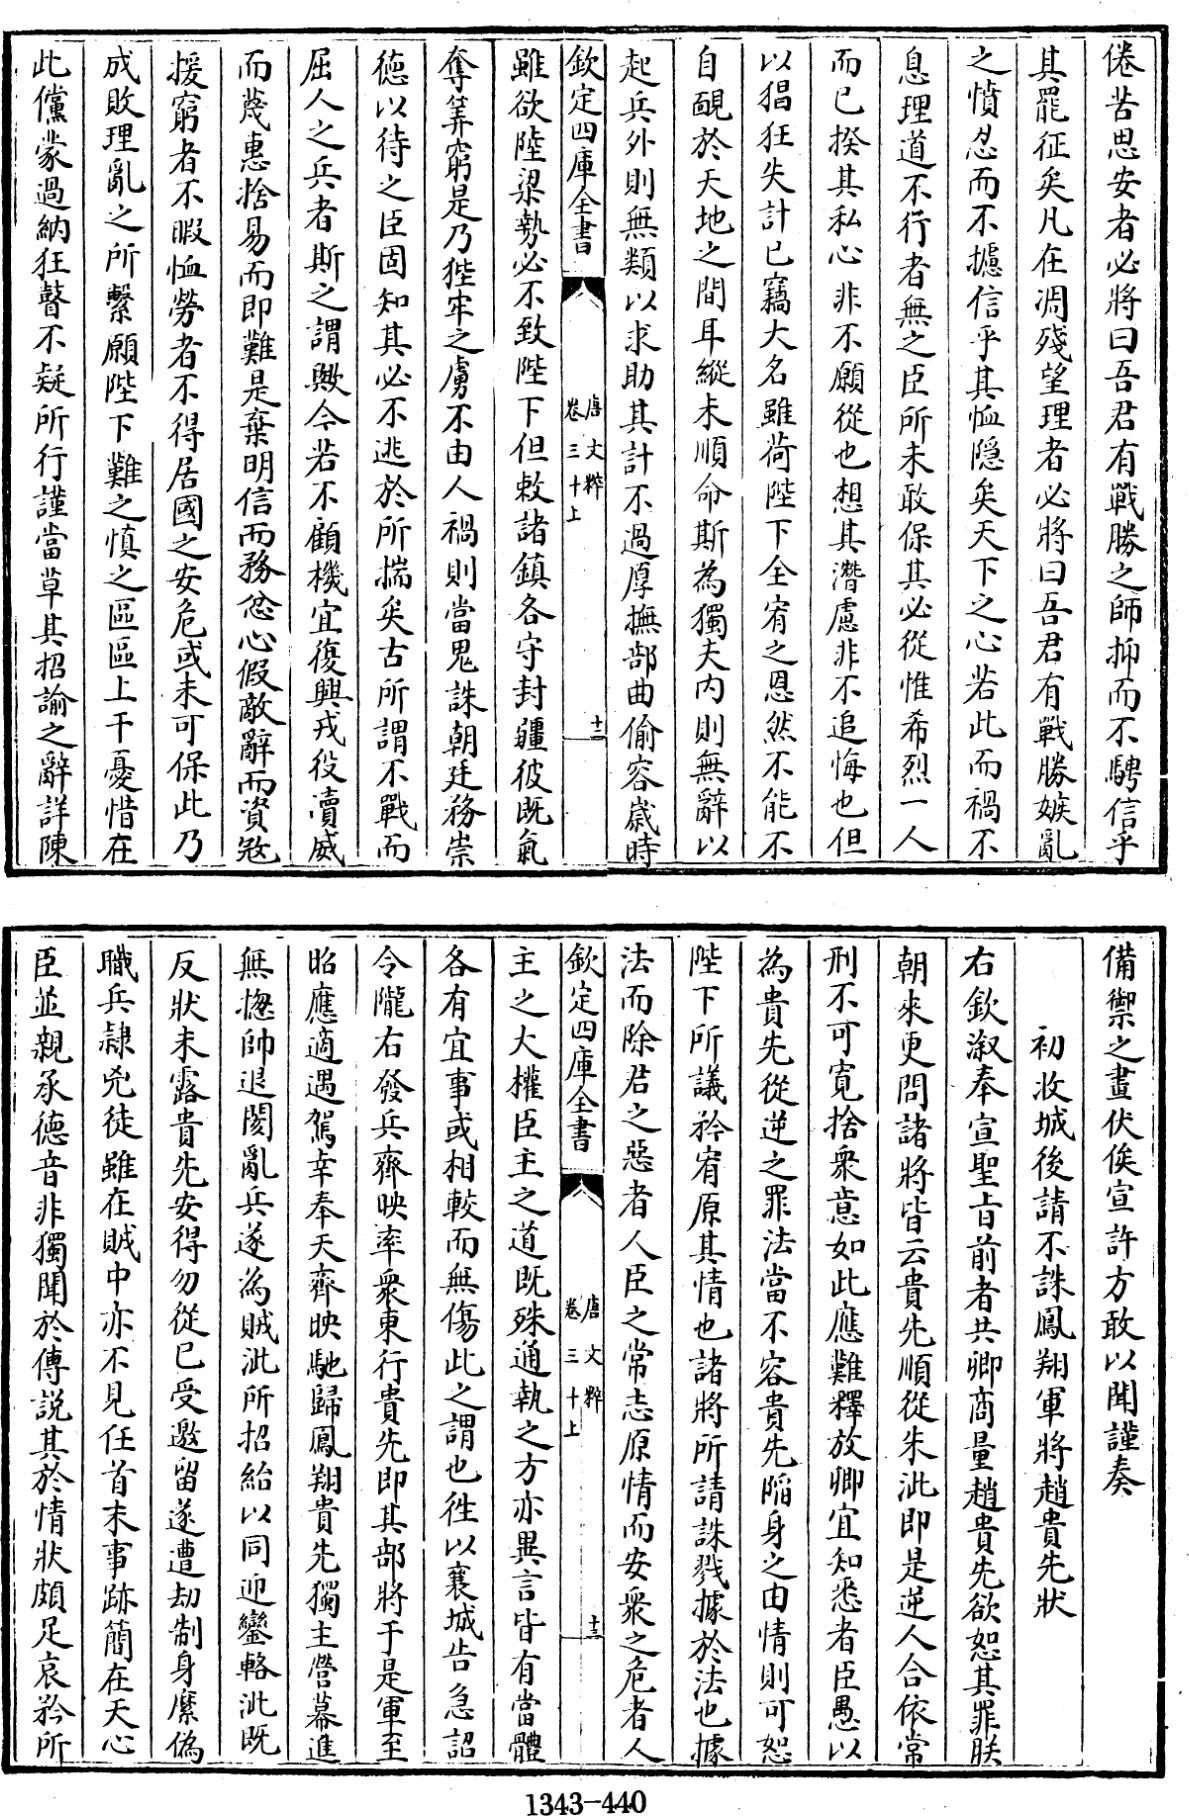 倦苦思安者必將曰吾君有戰勝之師抑而不騁信乎
其罷征矣凡在凋殘望理者必將曰吾君有戰勝嫉亂
之憤忍而不攄信乎其恤隱矣天下之心若此而禍不
息理道不行者無之臣所未敢保其必從惟希烈一人
而已揆其私心非不願從也想其潛慮非不追悔也但
以猖狂失計已竊大名雖荷陛下全宥之恩然不能不
自靦於天地之間耳縱未順命斯為獨夫内則無辭以
起兵外則無類以求助其計不過厚撫部曲偷容歲時
欽定四庫全書
唐文粹
卷三十上
十二
雖欲陸梁勢必不致陛下但敕諸鎮各守封疆彼既氣
奪算窮是乃狴牢之虜不由人禍則當鬼誅朝廷務崇
徳以待之臣固知其必不逃於所揣矣古所謂不戰而
屈人之兵者斯之謂歟今若不顧機宜復興戎役瀆威
而蔑惠捨易而即難是棄明信而務忿心假敵辭而資寇
援窮者不暇恤勞者不得居國之安危或未可保此乃
成敗理亂之所繫願陛下難之慎之區區上干憂惜在
此儻蒙過納狂瞽不疑所行謹當草其招諭之辭詳陳
備禦之畫伏俟宣許方敢以聞謹奏
初收城後請不誅鳳翔軍將趙貴先狀
右欽溆奉宣聖旨前者共卿商量趙貴先欲恕其罪朕
朝來更問諸將皆云貴先順從朱泚即是逆人合依常
刑不可寛捨衆意如此應難釋放卿宜知悉者臣愚以
為貴先從逆之罪法當不容貴先陷身之由情則可恕
陛下所議矜宥原其情也諸將所請誅戮據於法也據
法而除君之惡者人臣之常志原情而安衆之危者人
欽定四庫全書
唐文粹
卷三十上
十三
主之大權臣主之道既殊通執之方亦異言皆有當體
各有宜事或相較而無傷此之謂也徃以襄城告急詔
令隴右發兵齊映率衆東行貴先即其部將于是軍至
昭應適遇駕幸奉天齊映馳歸鳳翔貴先獨主營幕進
無揔帥退閡亂兵遂為賊泚所招紿以同迎鑾輅泚既
反狀未露貴先安得勿從已受邀留遂遭劫制身縻偽
職兵隸兇徒雖在賊中亦不見任首末事跡簡在天心
臣並親承德音非獨聞於傳説其於情狀頗足哀矜所
1343-440